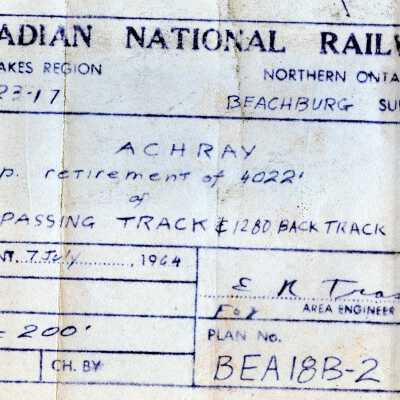 ADIAN NATIONAL RAILW
AKES REGION NORTHERN ONTA
23-17 BEACHBURG SU
ACHRAY
p. retirement of 4022'
of
PASSING TRACK & 1280 BACK TRACK
NT. 7 July, 1964
E R
For AREA ENGINEER
= 200' PLAN No.
CH. BY BEA18B-2